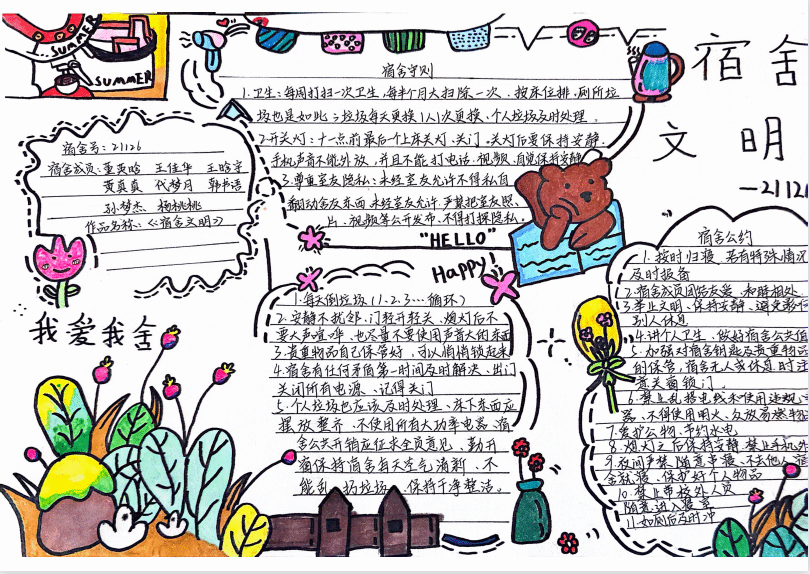 SUMMER
SUMMER
宿舍
文明
-21126
宿舍守则
1.卫生:每周打扫一次卫生,每半个月大扫除一次、按床位排,厕所垃
圾也是如此;垃圾每天更换1人1次更换,个人垃圾及时处理。
2.开关灯:十一点前最后个上床关灯、关门。关灯后要保持安静、
手机声音不能外放,并且不能打电话、视频、自觉保持安静
3.尊重室友隐私:未经室友允许不得私自
翻动舍友东西,未经室友允许,严禁把室友照
片、视频等公开发布,不得打探隐私。
宿舍号:21126
宿舍成员: 王佳华
代梦月
孙梦杰 杨桃桃
作品名称:《宿舍文明》
我爱我舍
"HELLO"
Happy!
1.每天倒垃圾(1.2.3…循环)
2.安静不扰邻、门轻开轻关、熄灯后不
要大声喧哗,也尽量不要使用声音大的东西
3.贵重物品自己保管好,可以悄悄锁起来
4.宿舍有任何矛盾第一时间及时解决、出门
关闭所有电源、记得关门
5.个人垃圾也应该及时处理、床下东西应
摆放整齐、不使用所有大功率电器、宿
舍公共开销应征求全员意见、勤开
窗保持宿舍每天空气清新、不
能乱扔垃圾、保持干净整洁。
宿舍公约
1.按时归寝,若有特殊情况
及时报备
2.宿舍成员团结友爱、和睦相处
3.举止文明、保持安静、避免影响
别人休息
4.讲个人卫生、做好宿舍公共值
5.加强对宿舍钥匙及贵重物品
的保管,宿舍无人或休息时注
意关窗锁门。
6.禁止乱搭电线和使用违规
器、不得使用明火、存放易燃
7.爱护公物、节约水电
8.熄灯之后保持安静,禁止手机外
9.夜间严禁随意串寝、不去他人宿
舍就寝、保护好个人物品
10.禁止带校外人员
随意进入寝室
11.如厕后及时冲